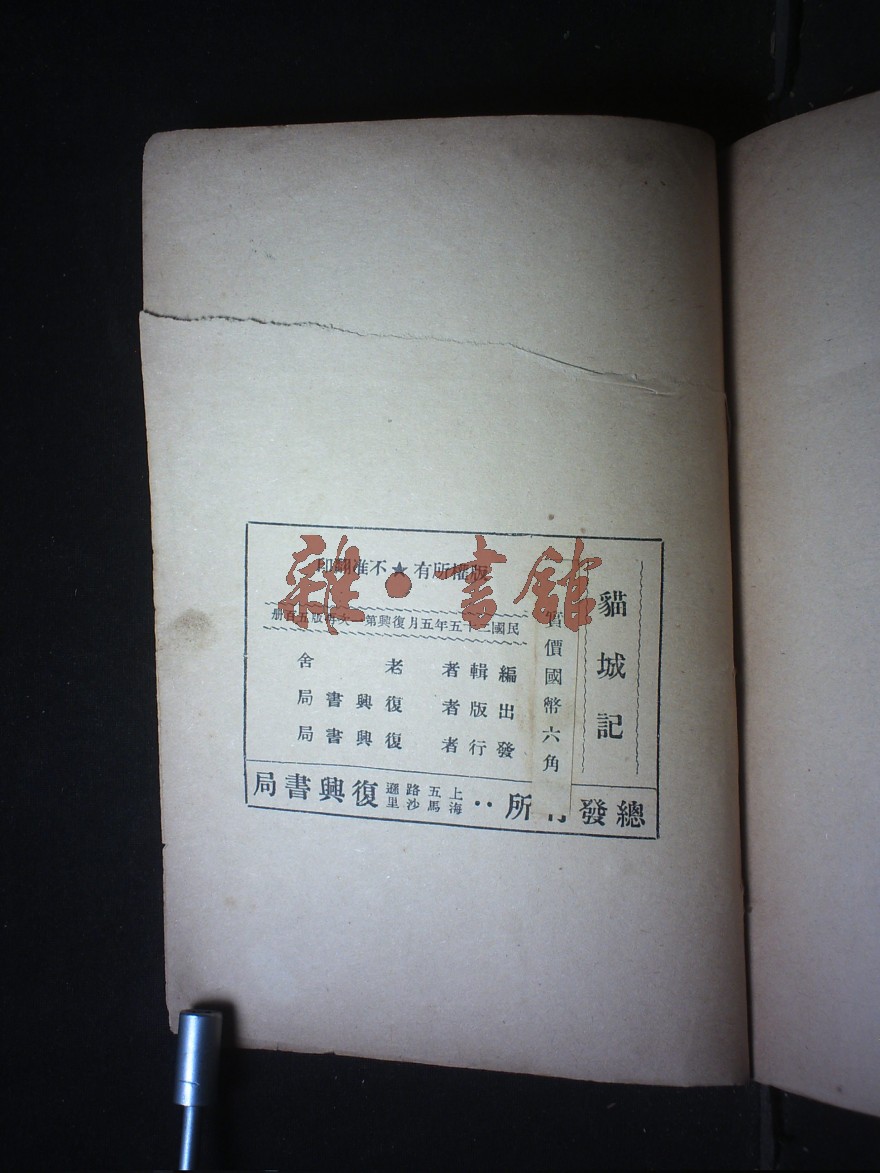 貓城記
實價國幣六角
版權所有★不准翻印
民國三十五年五月復興第一次再版五百册
編輯者 老舍
出版者 復興書局
發行者 復興書局
總發行所：上海五馬路沙遜里復興書局
雜·書館